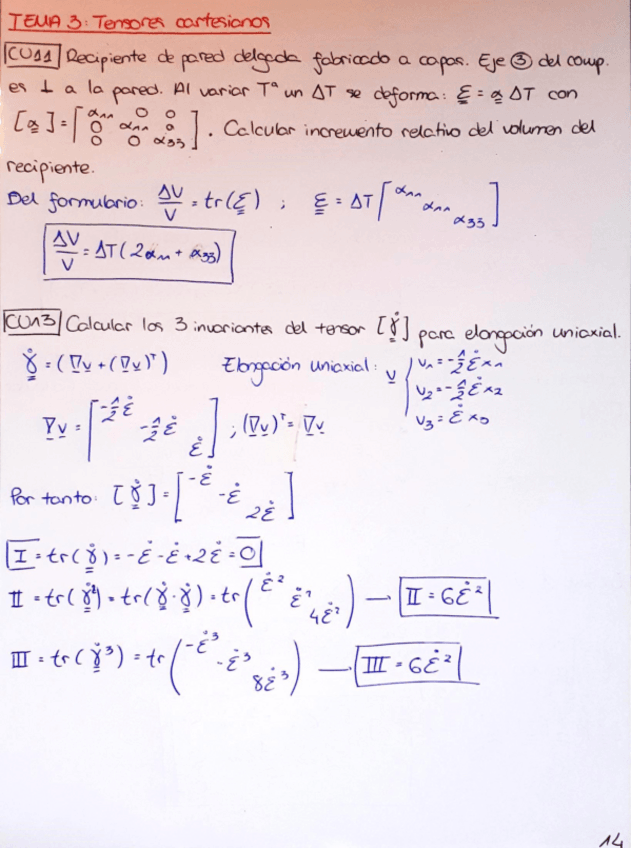 TEMA 3: Tensores cartesianos
CU11 Recipiente de pared delgada fabricado a capas. Eje ③ del comp.
es ⊥ a la pared. Al variar Tª un ΔT se deforma: ε = α ΔT con
[α] = [α₁₁ 0 0
0 α₁₁ 0
0 0 α₃₃]. Calcular incremento relativo del volumen del
recipiente.
Del formulario: ΔV/V = tr(ε) ; ε = ΔT [α₁₁ α₁₁ α₃₃]
ΔV/V = ΔT(2α₁₁ + α₃₃)
CU13 Calcular los 3 invariantes del tensor [γ̇] para elongación uniaxial.
γ̇ = (∇v + (∇v)ᵀ) Elongación uniaxial: v { v₁ = -1/2 ε̇ x₁
v₂ = -1/2 ε̇ x₂
v₃ = ε̇ x₃
∇v = [-1/2 ε̇ -1/2 ε̇ ε̇] ; (∇v)ᵀ = ∇v
Por tanto: [γ̇] = [-ε̇ -ε̇ 2ε̇]
I = tr(γ̇) = -ε̇ - ε̇ + 2ε̇ = 0
II = tr(γ̇²) = tr(γ̇·γ̇) = tr(ε̇² ε̇² 4ε̇²) — II = 6ε̇²
III = tr(γ̇³) = tr(-ε̇³ -ε̇³ 8ε̇³) — III = 6ε̇²
14